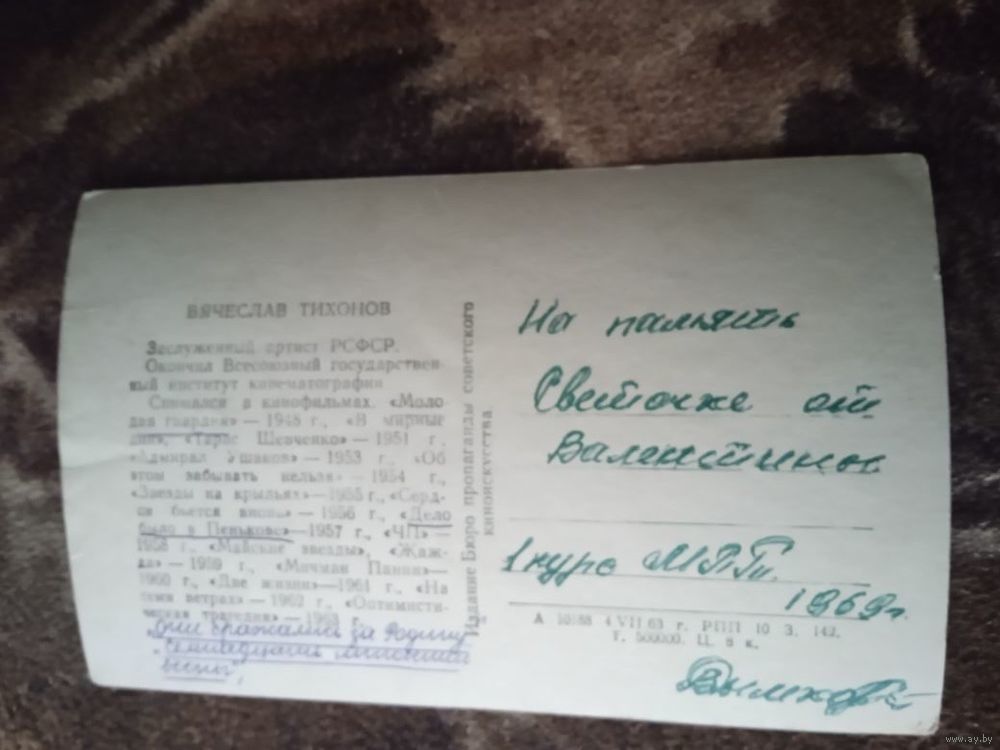 ВЯЧЕСЛАВ ТИХОНОВ
Заслуженный артист РСФСР.
Окончил Всесоюзный государствен-
ный институт кинематографии
Снимался в кинофильмах: «Моло-
дая гвардия» — 1948 г., «В мирные
дни», «Тарас Шевченко» — 1951 г.,
«Адмирал Ушаков» — 1953 г., «Об
этом забывать нельзя» — 1954 г.,
«Звезды на крыльях» — 1955 г., «Серд-
це бьется вновь» — 1956 г., «Дело
было в Пенькове» — 1957 г., «ЧП» —
1958 г., «Майские звезды», «Жаж-
да» — 1959 г., «Мичман Панин» —
1960 г., «Две жизни» — 1961 г., «На
семи ветрах» — 1962 г., «Оптимисти-
ческая трагедия» — 1963 г.
"Они сражались за Родину"
"Семнадцать мгновений
весны",
Издание Бюро пропаганды советского
киноискусства.
На память
Светочке от
Валентины
1 курс
1969 г.
А 10188 4/VII 63 г. РПП 10 З. 142.
Т. 500000. Ц. 8 к.
www.ay.by